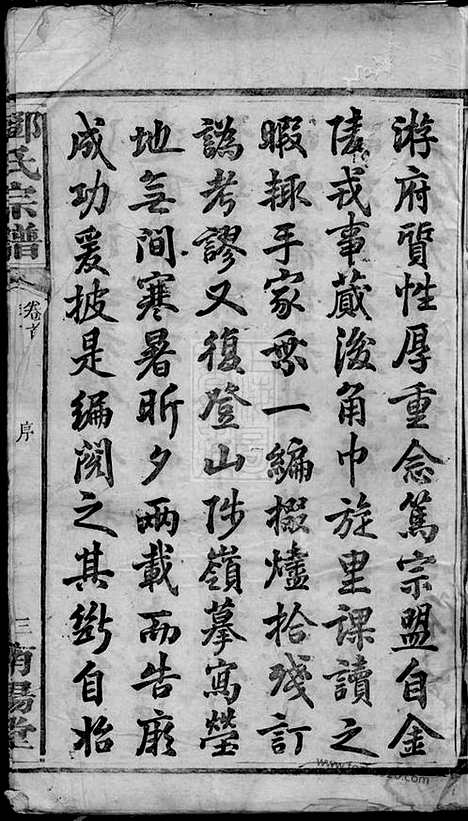 游府質性厚重念篤宗盟自金
陵戎事蕆後角巾旋里課讀之
暇輙手家乘一編掇燼拾殘訂
譌考謬又復登山陟嶺摹寫塋
地無間寒暑昕夕兩載而告厥
成功爰披是編閱之其斷自始
鄧氏宗譜
卷首
序
三
南陽堂